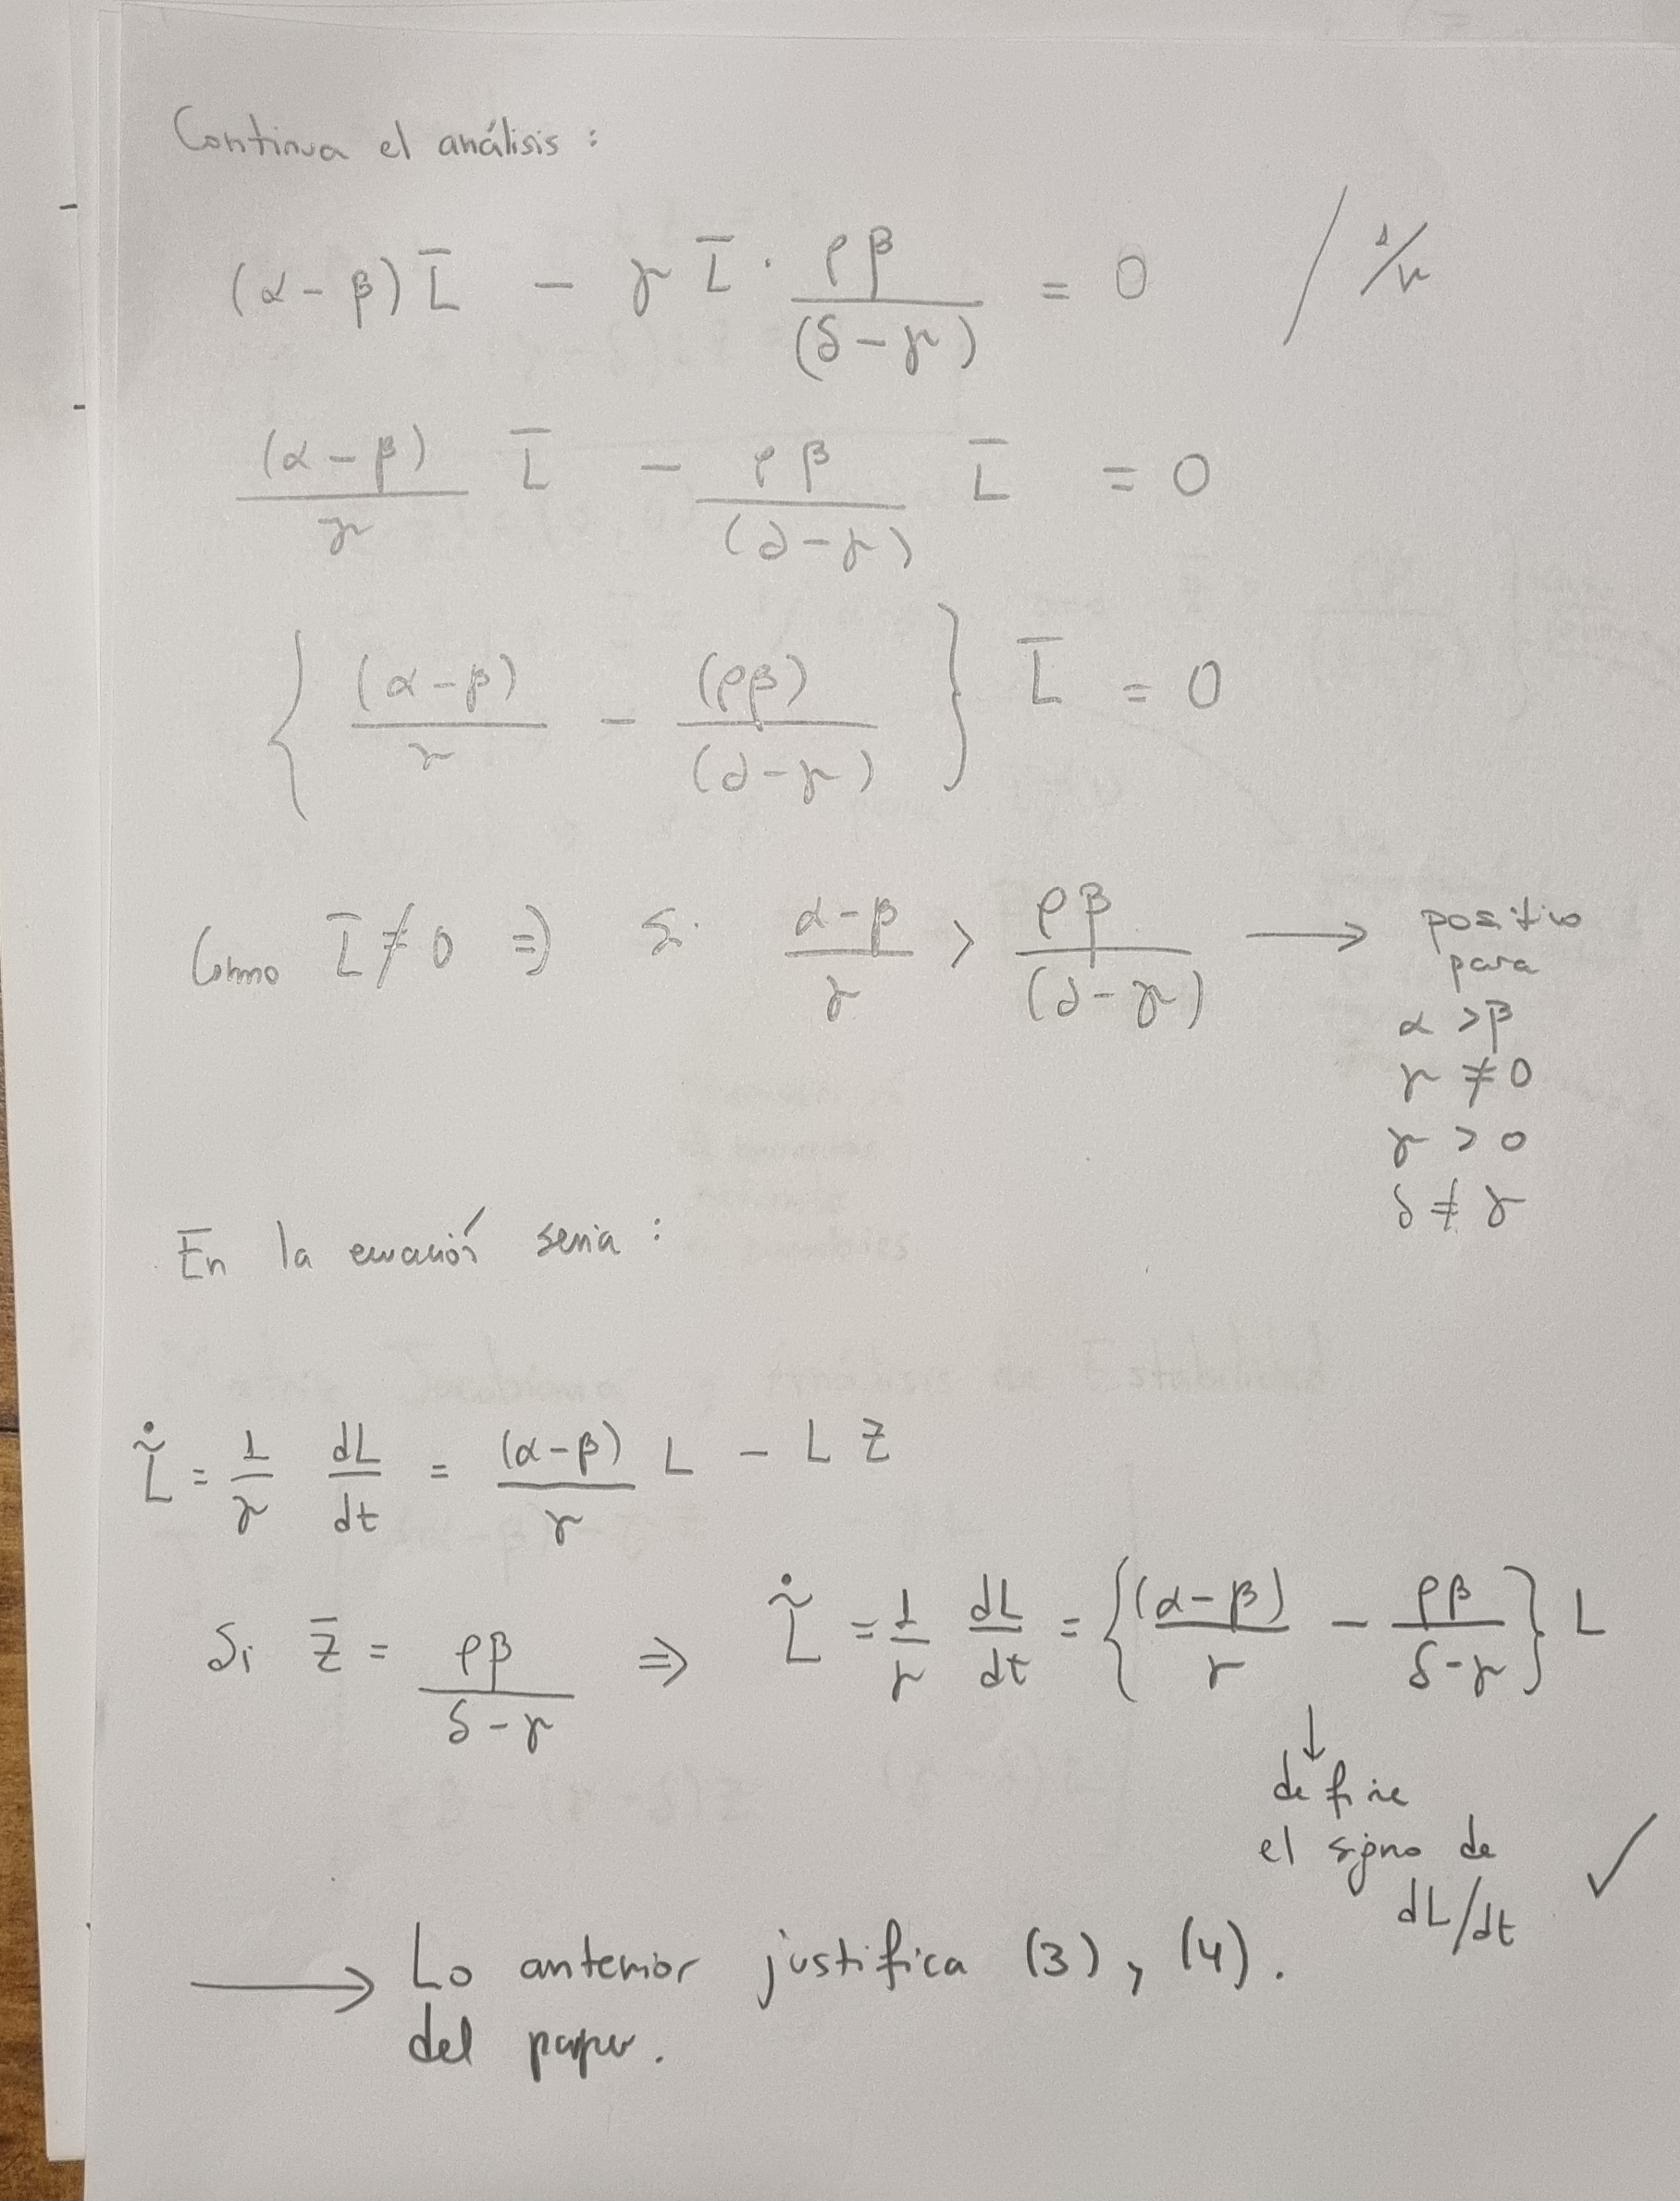 Continua el análisis :
(α - β) L̄ - γ L̄ · ρβ/(δ - γ) = 0 / 1/γ
(α - β)/γ L̄ - ρβ/(δ - γ) L̄ = 0
{ (α - β)/γ - (ρβ)/(δ - γ) } L̄ = 0
Como L̄ ≠ 0 ⇒ Si α - β/γ > ρβ/(δ - γ) → positivo
para
α > β
γ ≠ 0
γ > 0
δ ≠ γ
En la ecuación seria :
L̃̇ = 1/γ dL/dt = (α - β)/γ L - L Z
Si Z̄ = ρβ/δ - γ ⇒ L̃̇ = 1/γ dL/dt = { (α - β)/γ - ρβ/δ - γ } L
↓
define
el signo de ✓
dL/dt
→ Lo anterior justifica (3), (4).
del paper.